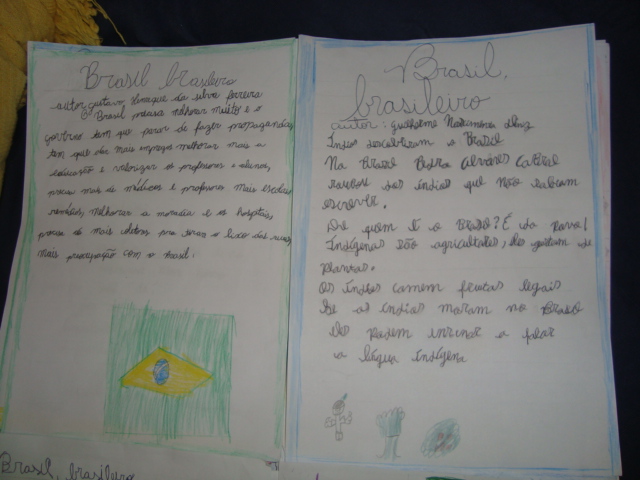 Brasil brasileiro
autor: gustavo da silva ferreira
O Brasil precisa melhorar muito e o
governo tem que parar de fazer propagandas
tem que dar mais empregos melhorar mais a
educação e valorizar os professores e alunos,
precisa mais de médicos e professores mais escolas
melhorar a moradia e os hospitais,
precisa de mais pra o lixo das ruas,
mais preocupação com o Brasil.
Brasil,
brasileiro
autor: guilherme
Índios descobriram o Brasil
No Brasil Pedro Alvares Cabral
dos índios que não sabiam
escrever.
De quem é o Brasil? É do povo!
Indígenas são eles gostam de
plantas.
Os índios comem frutas legais
Se os índios moram no Brasil
Eles podem ensinar a falar
a lígua indígena
Brasil, brasileiro